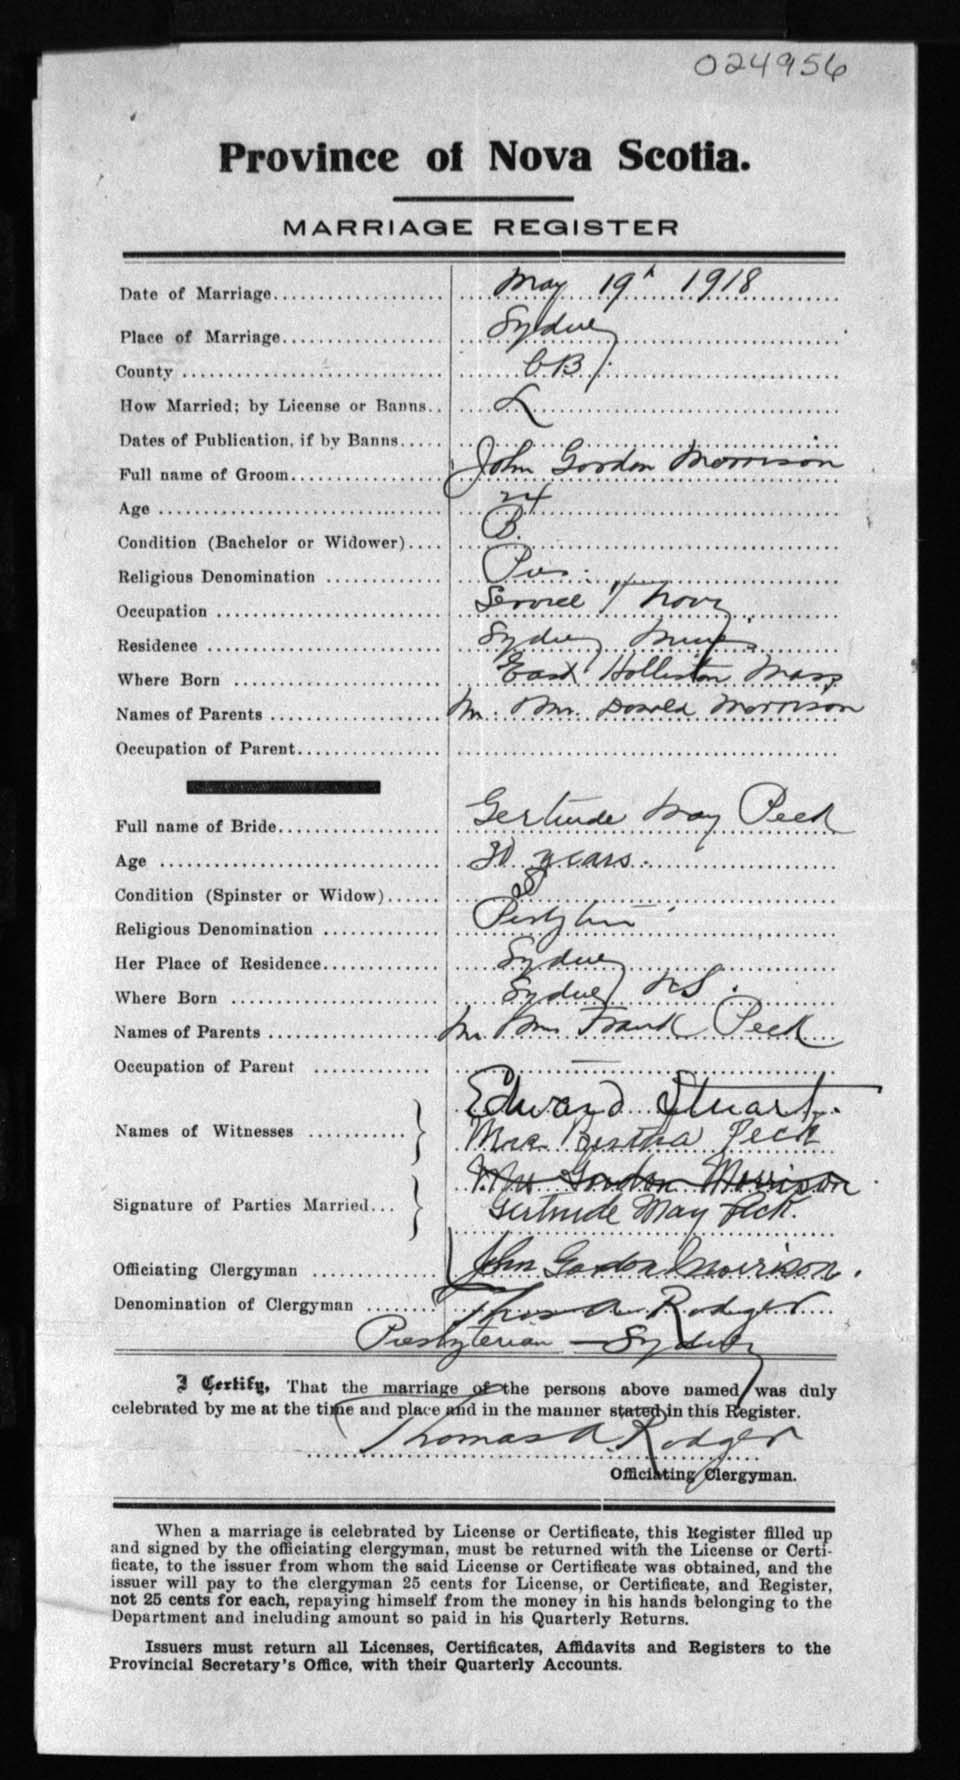 024956
Province of Nova Scotia.
MARRIAGE REGISTER
Date of Marriage.................... May 19th 1918
Place of Marriage................... Sydney
County .............................. CB
How Married; by License or Banns.. L
Dates of Publication, if by Banns.....
Full name of Groom.................. John Gordon Morrison
Age ................................. 24
Condition (Bachelor or Widower).... B.
Religious Denomination ............. Pres.
Occupation .......................... Service Navy
Residence ........................... Sydney Mines
Where Born ......................... East Holliston Mass
Names of Parents .................... Mr. & Mrs. Donald Morrison
Occupation of Parent.................
Full name of Bride................... Gertrude May Peck
Age ................................. 30 years.
Condition (Spinster or Widow)...... S
Religious Denomination .............
Her Place of Residence.............. Sydney
Where Born ......................... Sydney NS.
Names of Parents .................... Mr & Mrs Frank Peck
Occupation of Parent ............... —
Names of Witnesses ........... } Edward Stuart.
Mrs. Bertha Peck
Signature of Parties Married... } Mrs Gordon Morrison
Gertrude May Peck.
Officiating Clergyman ............... John Gordon Morrison.
Denomination of Clergyman ........ Thos A Rodger
Presbyterian — Sydney
I Certify, That the marriage of the persons above named was duly
celebrated by me at the time and place and in the manner stated in this Register.
Thomas A. Rodger
Officiating Clergyman.
When a marriage is celebrated by License or Certificate, this Register filled up
and signed by the officiating clergyman, must be returned with the License or Certi-
ficate, to the issuer from whom the said License or Certificate was obtained, and the
issuer will pay to the clergyman 25 cents for License, or Certificate, and Register,
not 25 cents for each, repaying himself from the money in his hands belonging to the
Department and including amount so paid in his Quarterly Returns.
Issuers must return all Licenses, Certificates, Affidavits and Registers to the
Provincial Secretary's Office, with their Quarterly Accounts.